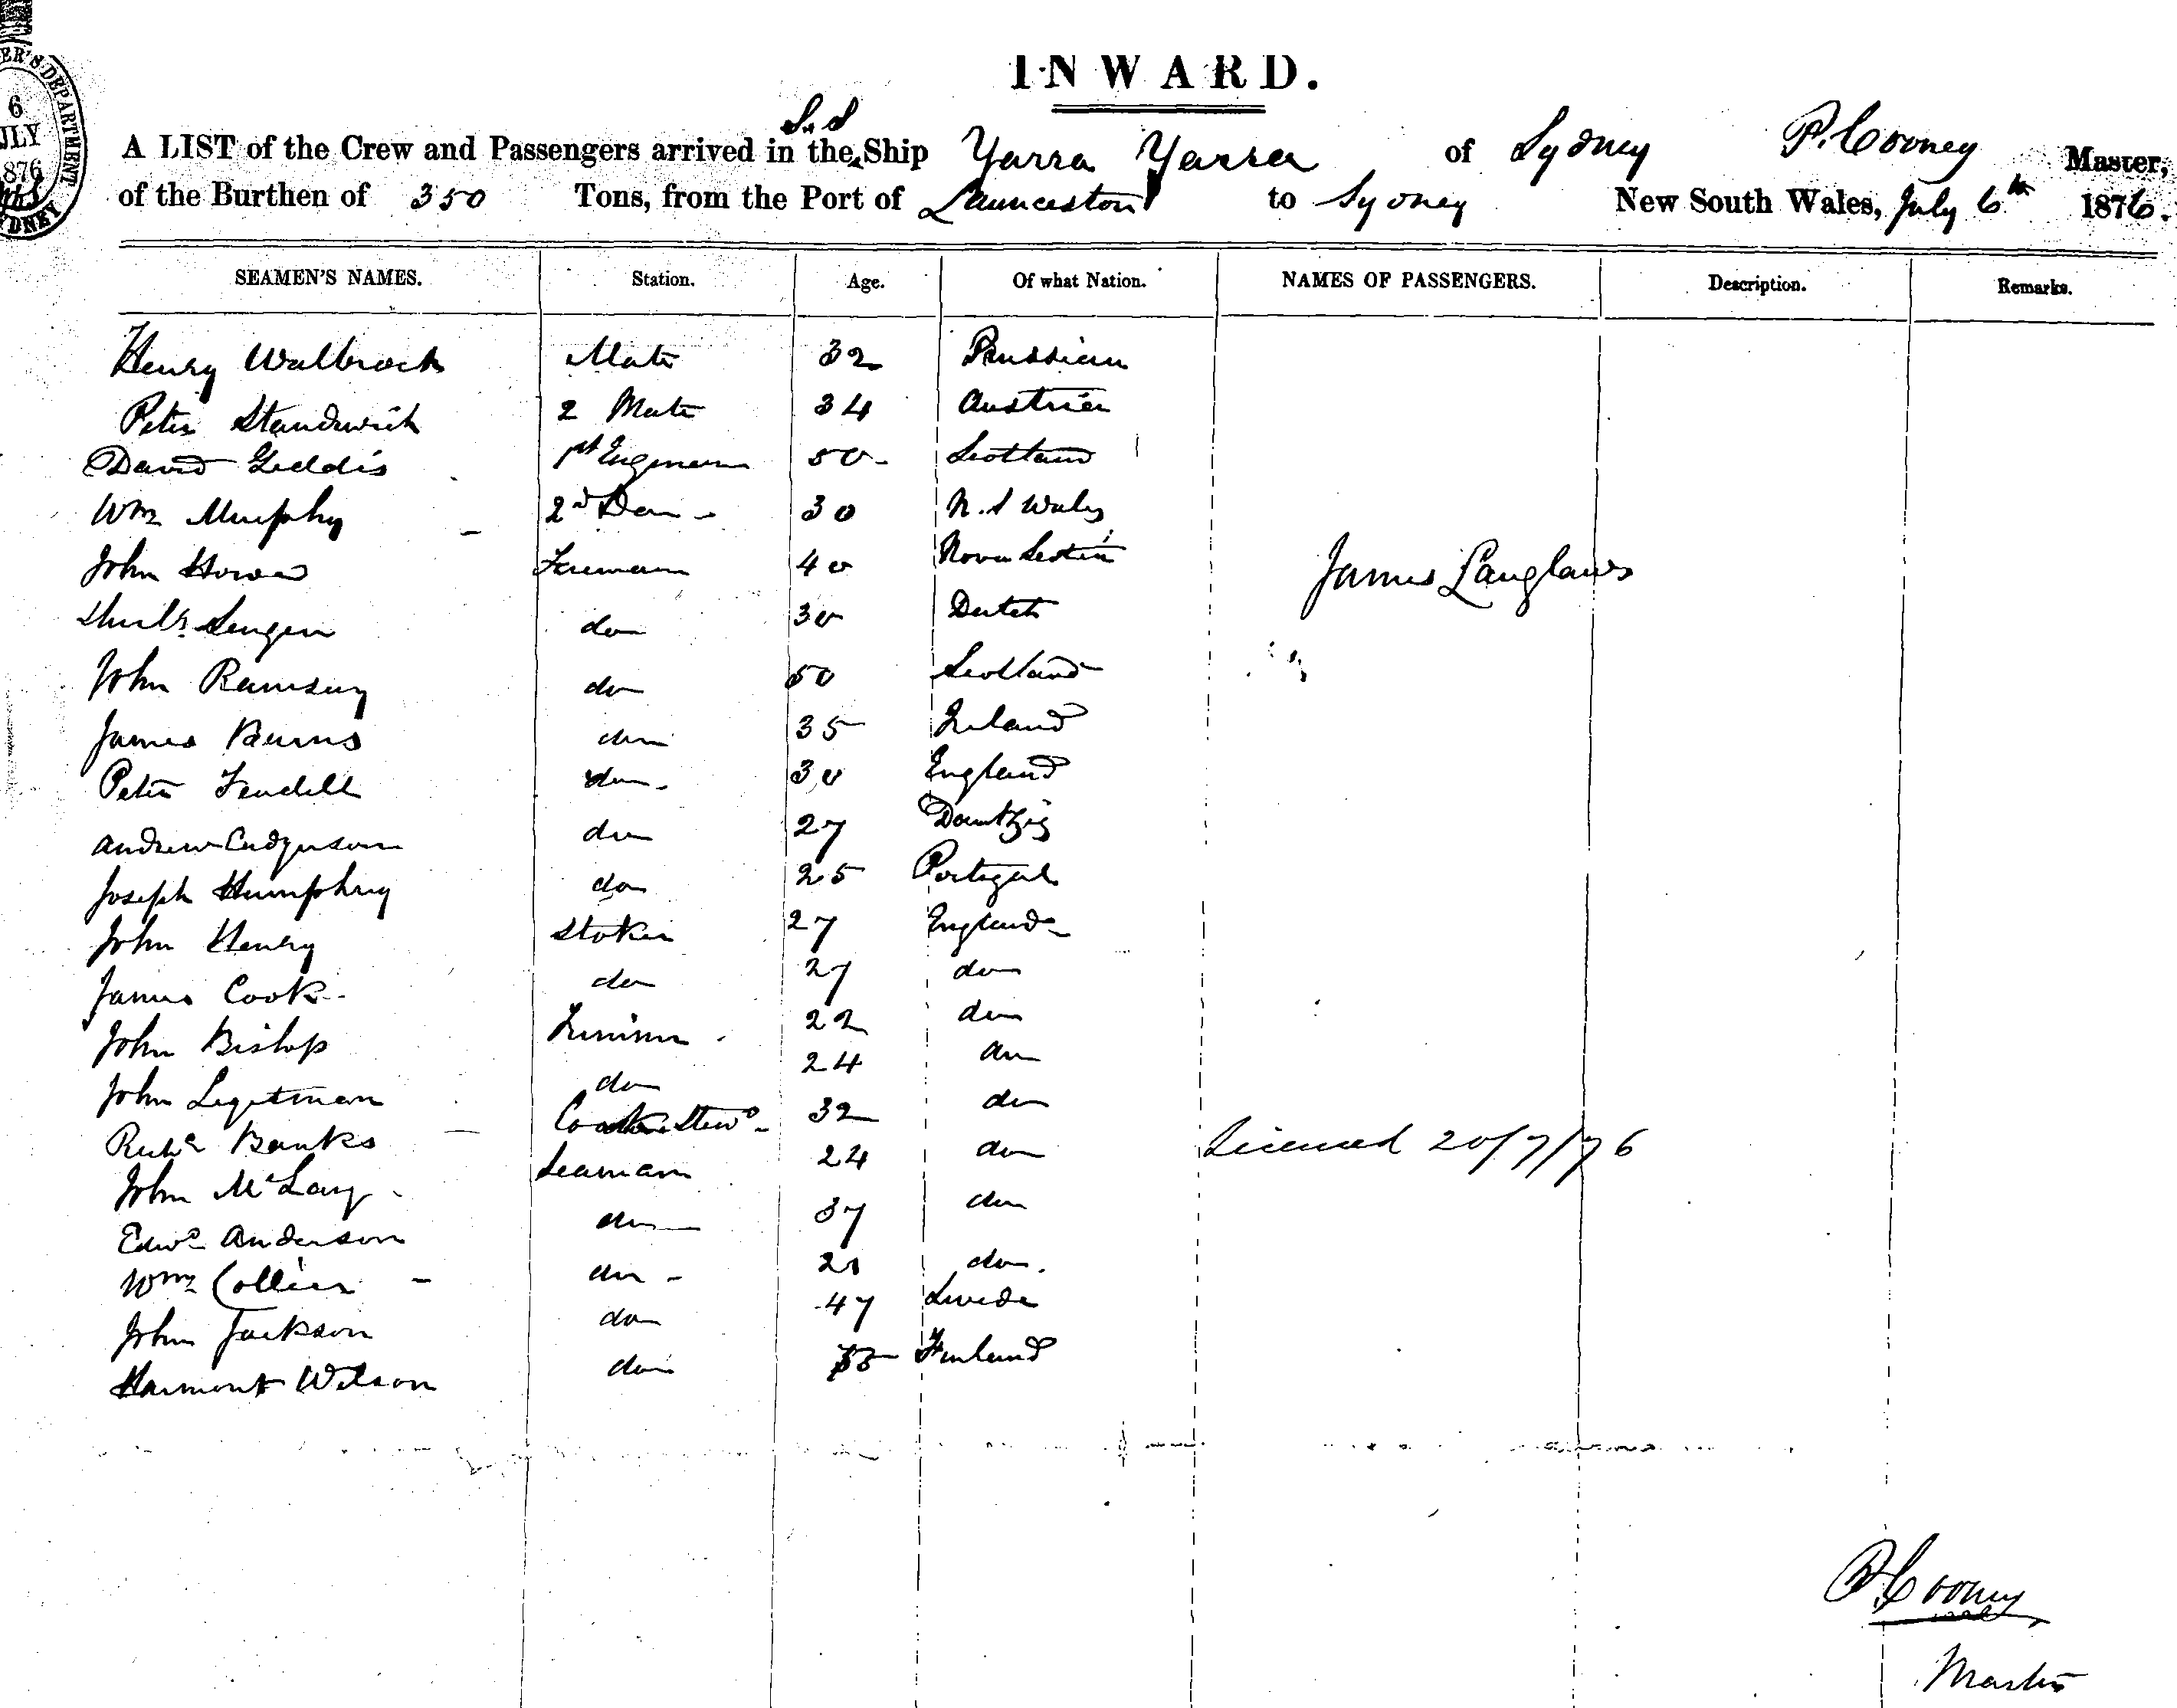 ER'S DEPARTMENT
6
JLY
1876
SYDNEY
INWARD.
S.S
A LIST of the Crew and Passengers arrived in the Ship Yarra Yarra of Sydney P. Cooney Master,
of the Burthen of 350 Tons, from the Port of Launceston to Sydney New South Wales, July 6th 1876.
SEAMEN'S NAMES. Station. Age. Of what Nation. NAMES OF PASSENGERS. Description. Remarks.
Henry Walbrock Mate 32 Prussian
Peter 2 Mate 34 Austria
David Geddis 1st Engineer 50 Scotland
Wm Murphy 2d Do 30 N.S Wales
John Howe Fireman 40 Nova Scotia James Langlands
do 30 Dutch
John Ramsay do 50 Scotland
James Burns do 35 Ireland
Peter do 30 England
Andrew do 27 Dantzig
Joseph Humphry do 25 Portugal
John Henry Stoker 27 England
James Cook do 27 do
John Bishop Trimmer 22 do
John do 24 do
Richd Banks Cook Stewd 32 do
John McLay Seaman 24 do Licensed 20/7/76
Edwd Anderson do 37 do
Wm Collier do 21 do
John Jackson do 47 Swede
Wilson do Finland
P. Cooney
Master